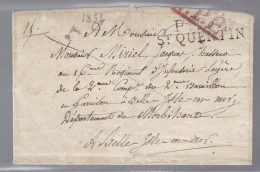 1832
P
ST QUENTIN
A Monsieur
Monsieur Miriel Jacques Chasseur
au Régiment d'Infanterie Legère
de la 2eme Compe du 2eme Bataillon
en Garnison à Belle Isle en mer
Département du Morbihan
à Belle Isle en mer.